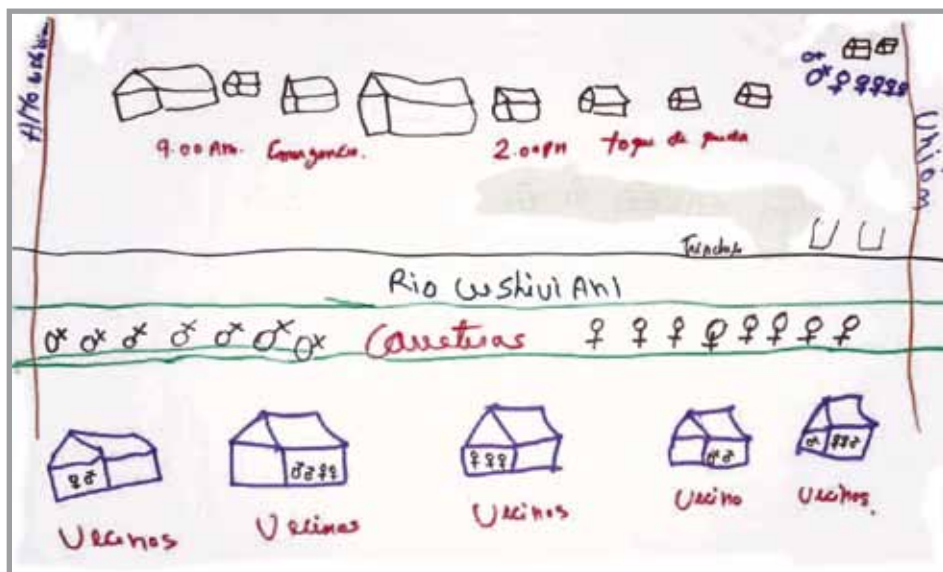 9.00 Am. Emergencia. 2.00 PM toque de queda
Unión
Rio Cushivi Ani
Carreteras
Vecinos Vecinas Vecinos Vecino Vecinos.